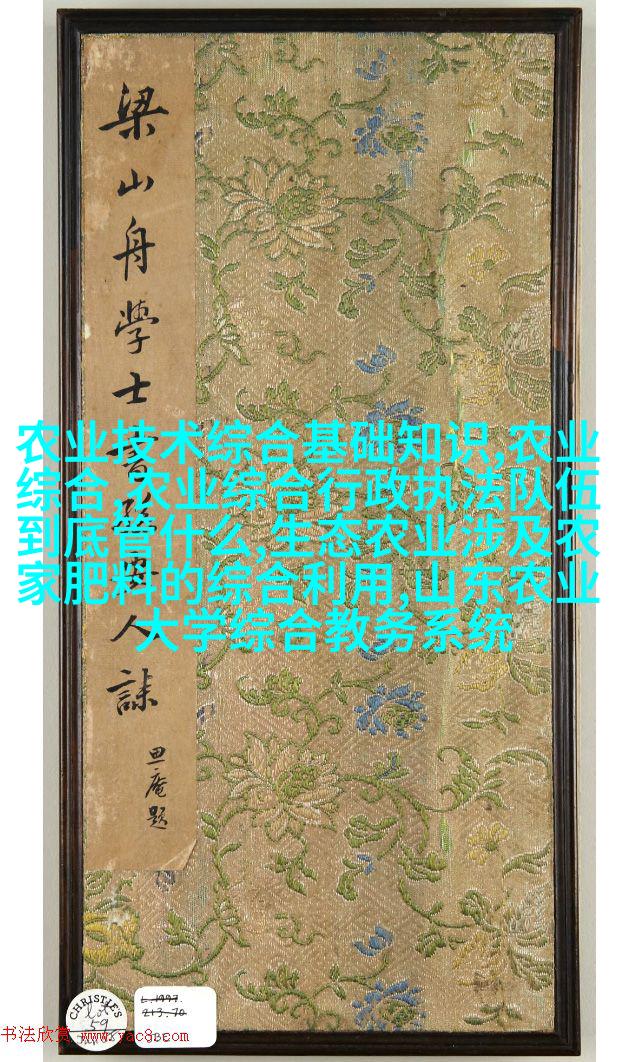 梁山舟學士書人誄
庵題
农业技术综合基础知识,农业
综合,农业综合行政执法队伍
到底管什么,生态农业涉及农
家肥料的综合利用,山东农业
大学综合教务系统
CHRISTIE'S
Lot
59
L.1997.
213.70
书法欣赏 www.yac8.com